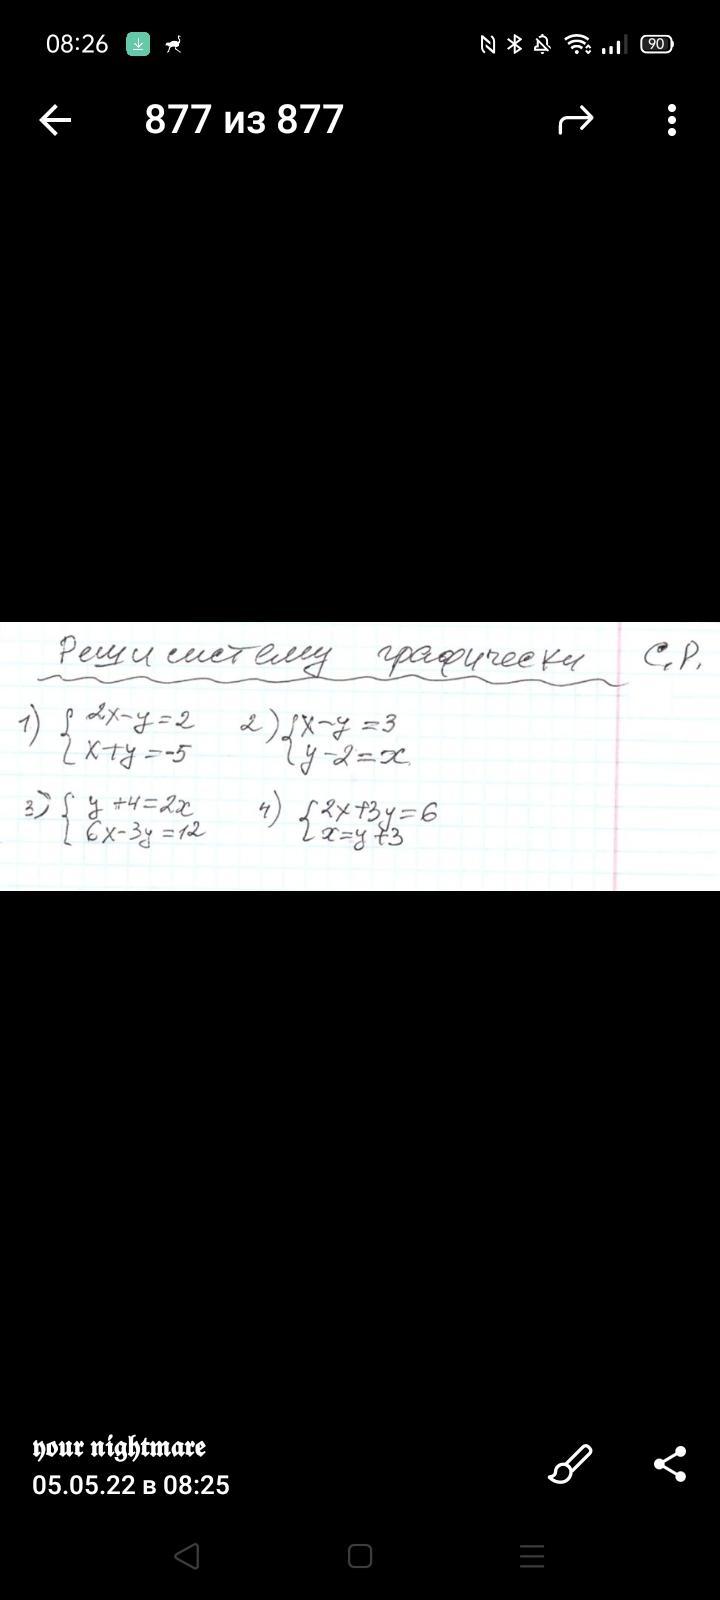 08:26 90
877 из 877
Реши систему графически С.Р.
1) { 2x-y=2 2) { x-y=3
x+y=-5 y-2=x
3) { y+4=2x 4) { 2x+3y=6
6x-3y=12 x=y+3
your nightmare
05.05.22 в 08:25